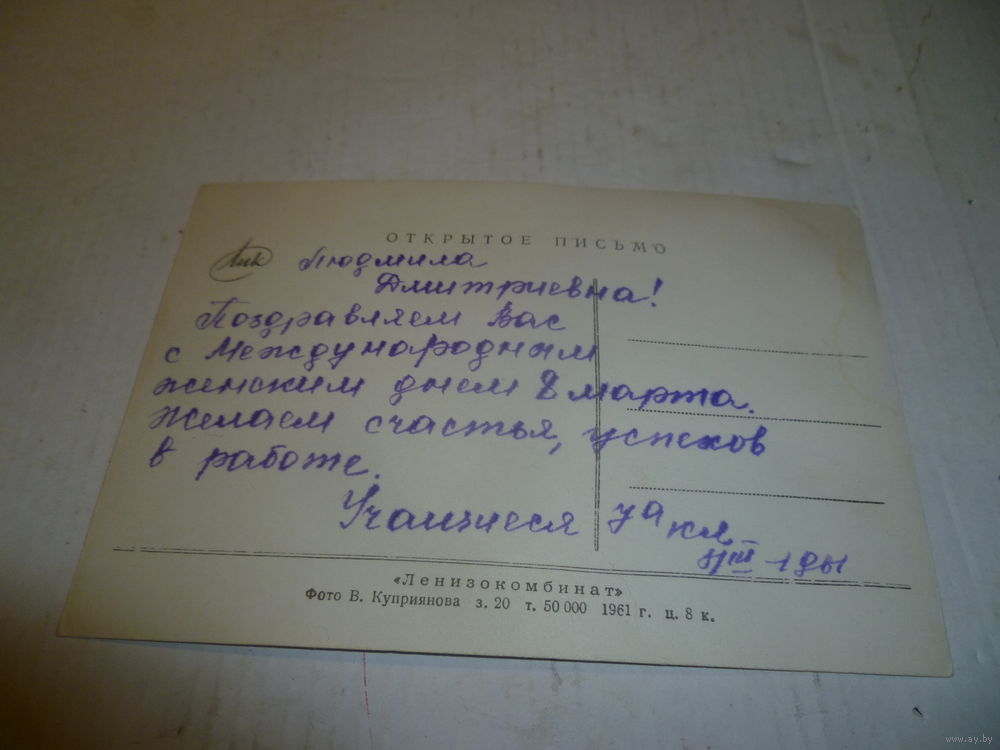 ОТКРЫТОЕ ПИСЬМО
Лик
Людмила
Дмитриевна!
Поздравляем Вас
с Международным
женским днем 8 марта.
Желаем счастья, успехов
в работе.
Учащиеся 7а кл.
«Ленизокомбинат»
Фото В. Куприянова з. 20 т. 50 000 1961 г. ц. 8 к.
www.ay.by